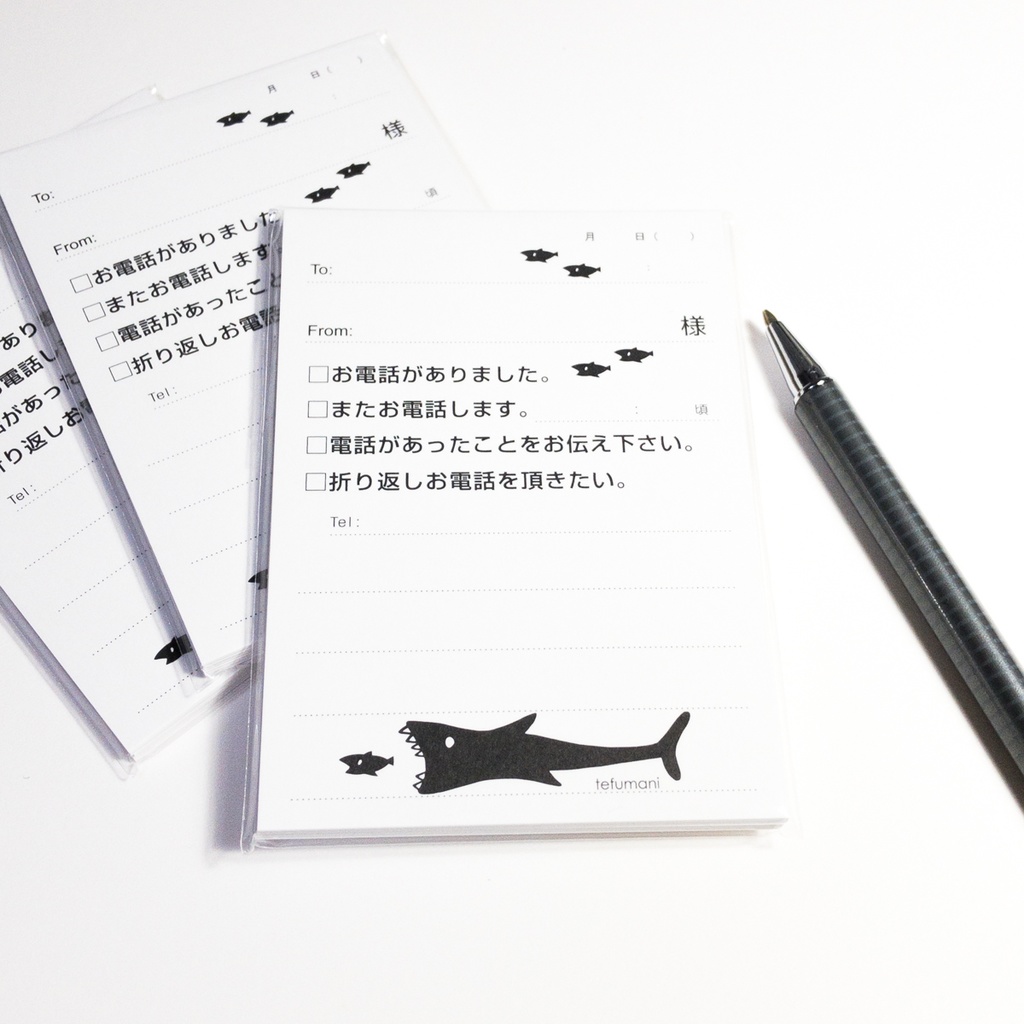 月 日( )
To: :
From: 様
□お電話がありました。
□またお電話します。 : 頃
□電話があったことをお伝え下さい。
□折り返しお電話を頂きたい。
Tel:
tefumani
月 日( )
To: :
From: 様
□お電話がありました
□またお電話します 頃
□電話があったこと
□折り返しお電話
Tel:
あり
電話し
があった
り返しお
Tel: